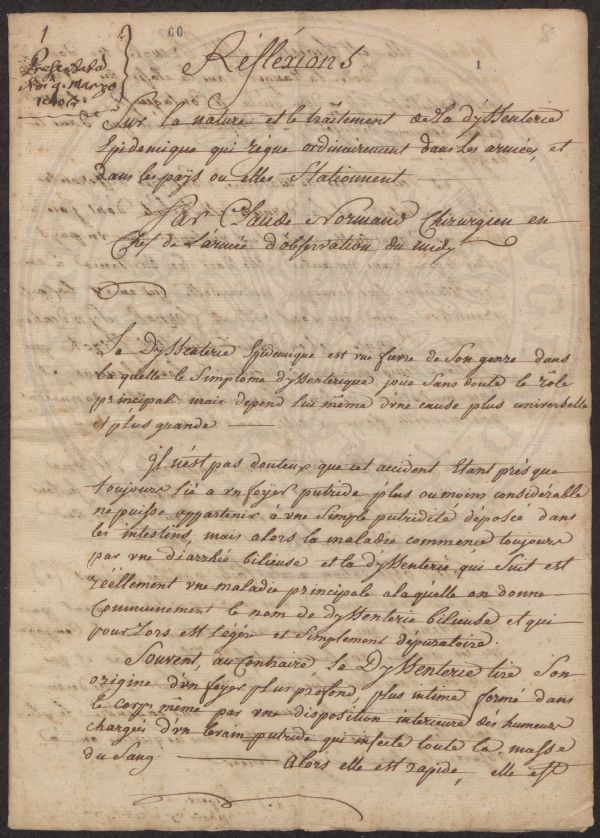 1
60
Réfléxions
1
Sur la nature et le traitement de la dyssenterie
Epidemique qui règne ordinairement dans les armées, et
dans les pays ou elles Stationnent
Par Claude Normand Chirurgien en
Chef de l'armée d'observation du midy
La Dyssenterie Epidemique est une fievre de Son genre dans
laquelle le Simptome dyssenterique joüe Sans doute le rôle
principal. mais depend lui même d'une cause plus universelle
et plus grande
Il n'est pas douteux que cet accident Etant près que
toujours lié a un foÿer putride plus ou moins considérable
ne puisse appartenir à une Simple putridité déposée dans
les intestins, mais alors la maladie commence toujours
par une diarrhée bilieuse et la dyssenterie qui Suit est
réellement une maladie principale a laquelle on donne
Communement le nom de dyssenterie bilieuse et qui
pour Lors est légére et Simplement dépuratoire.
Souvent, au Contraire la Dyssenterie tire Son
origine d'un foyer plus profond, plus intime formé dans
le corps même par une disposition interieure des humeurs
chargées d'un levain putride qui infecte toute la masse
du Sang alors elle est rapide, elle est